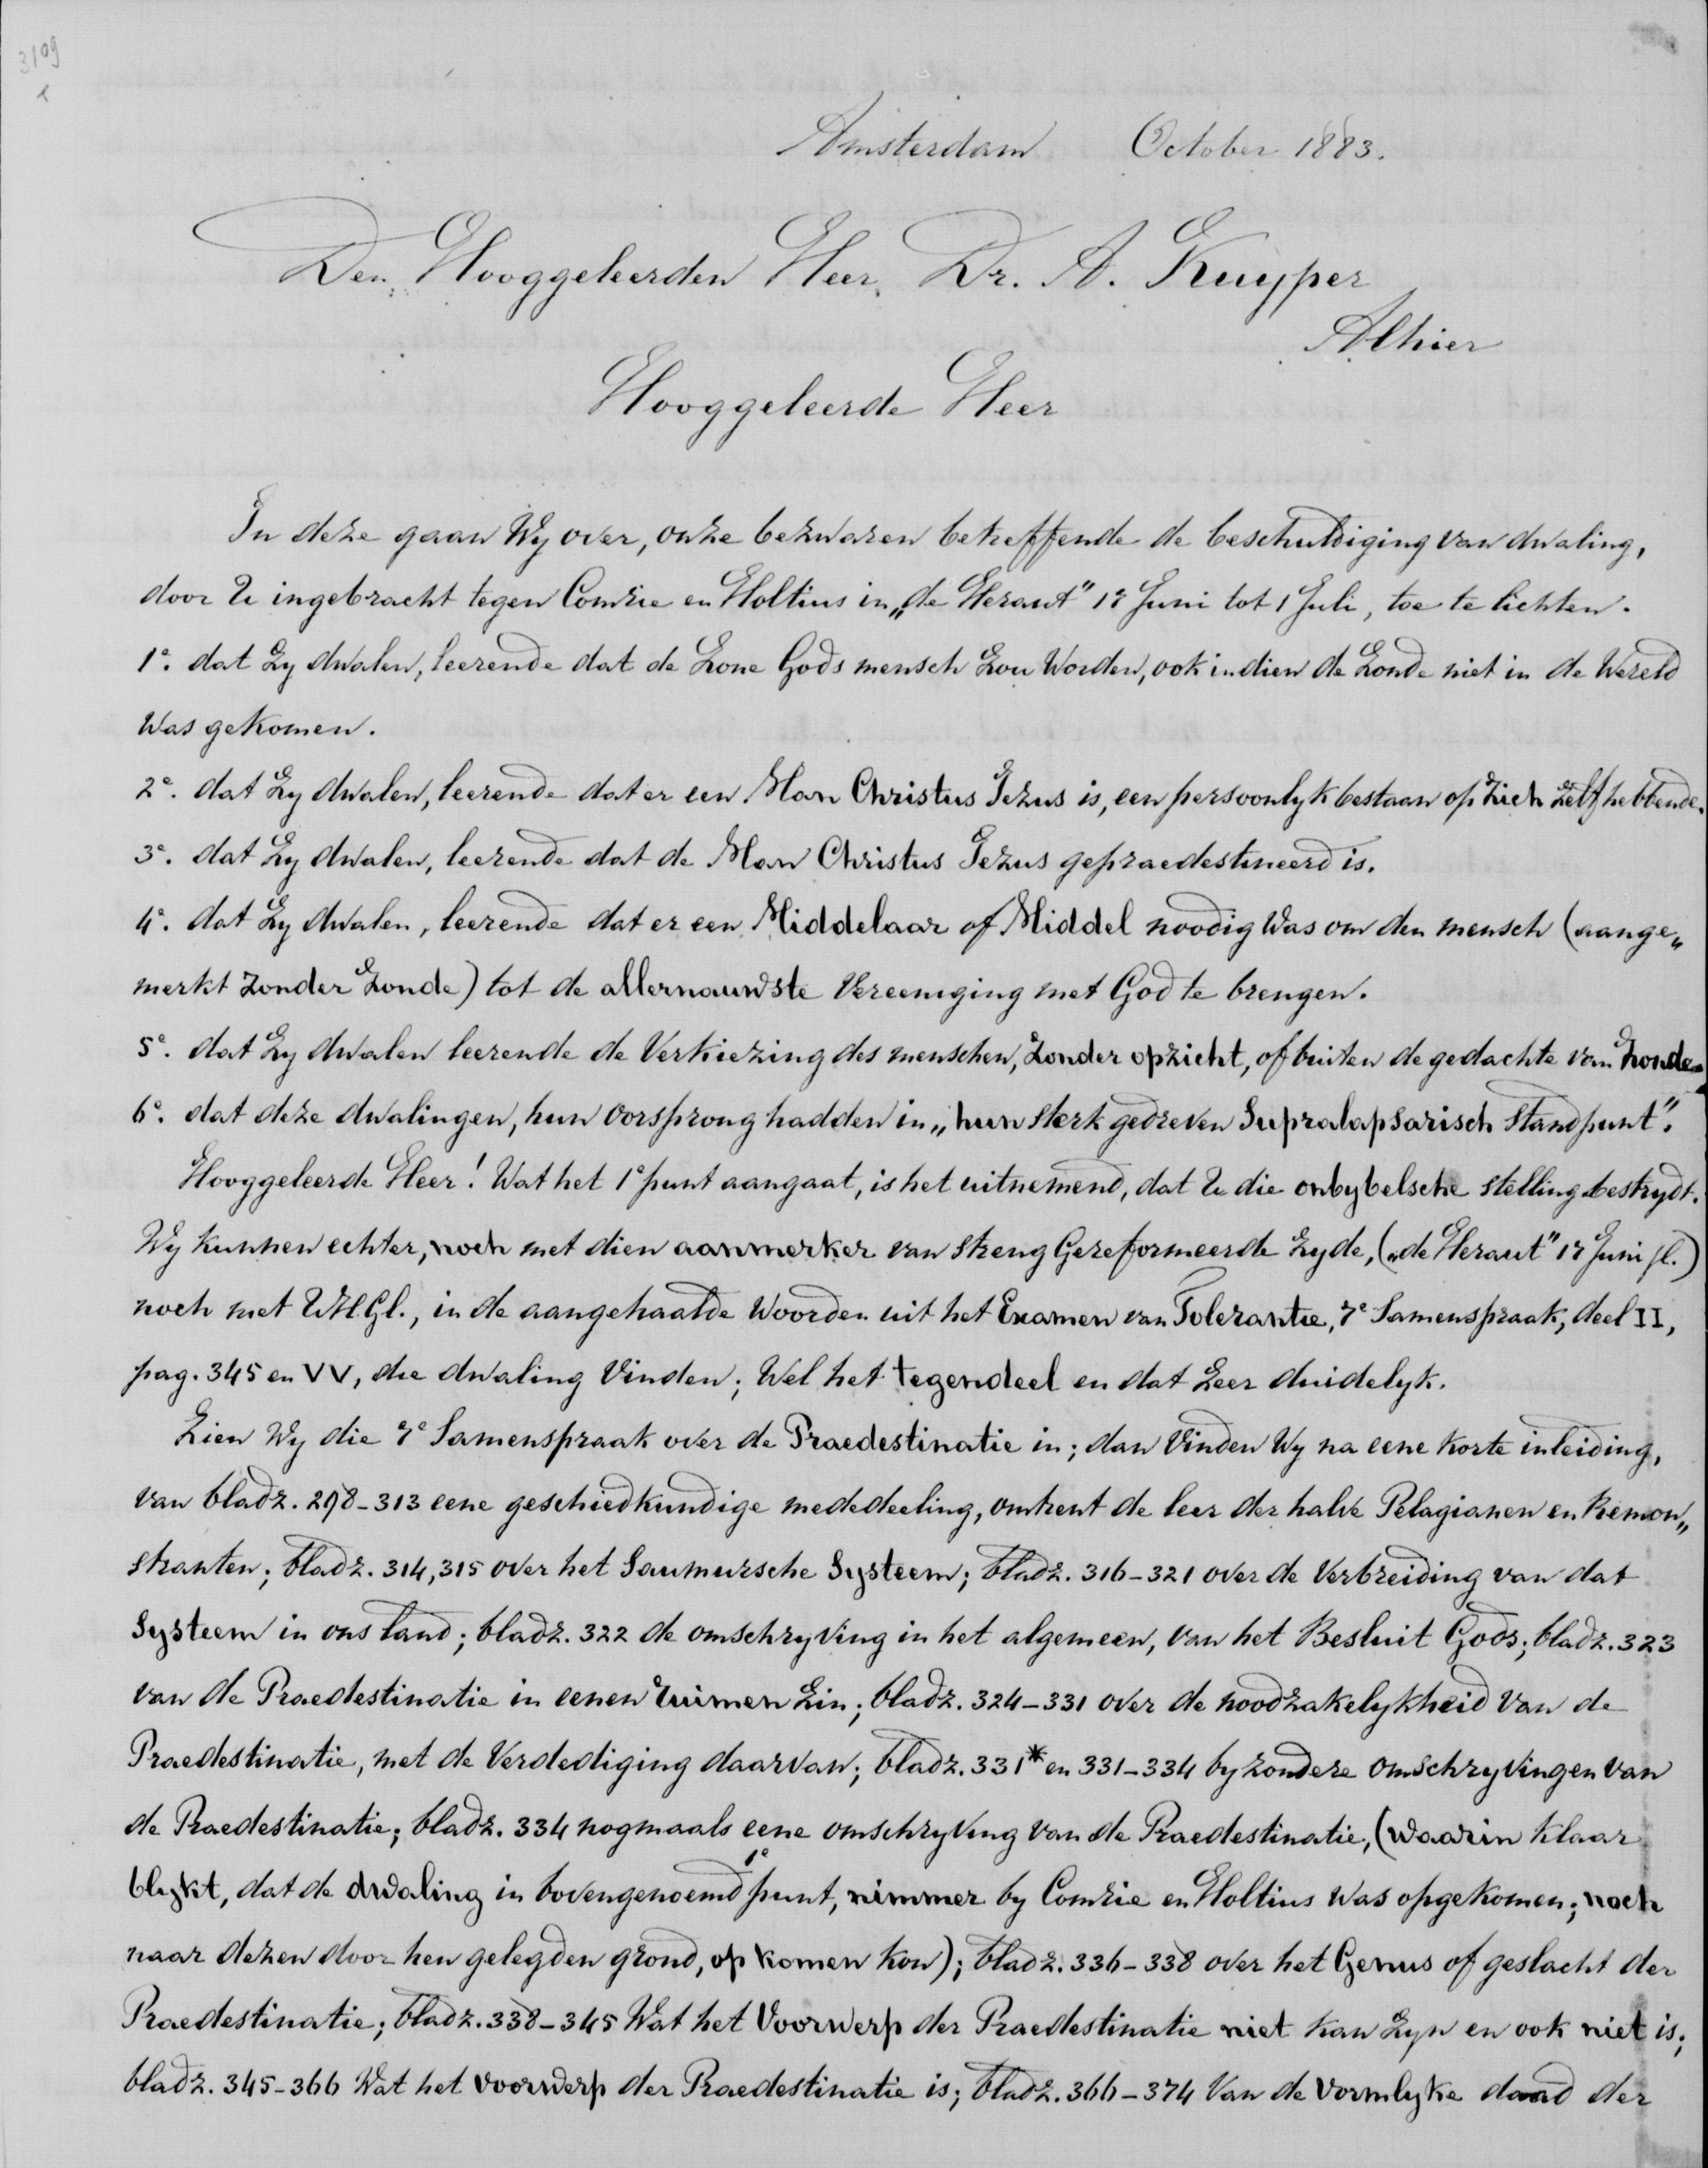 3109
Amsterdam October 1883.
Den Hooggeleerden Heer Dr. A. Kuyper
Alhier
Hooggeleerde Heer
In deze gaan Wy over, onze bezwaren betreffende de beschuldiging van dwaling,
door U ingebracht tegen Comrie en Holtius in „de Heraut" 17 Juni tot 1 Juli, toe te lichten.
1e. dat Zy dwalen, leerende dat de Zone Gods mensch Zou Worden, ook indien de Zonde niet in de Wereld
Was gekomen.
2e. dat Zy dwalen, leerende dat er een Man Christus Jezus is, een persoonlyk bestaan op Zich Zelf hebbende.
3e. dat Zy dwalen, leerende dat de Man Christus Jezus gepraedestineerd is.
4e. dat Zy dwalen, leerende dat er een Middelaar of Middel noodig Was om den mensch (aange„
merkt Zonder Zonde) tot de allernauwste Vereeniging met God te brengen.
5e. dat Zy dwalen leerende de Verkiezing des menschen, Zonder opzicht, of buiten de gedachte van Zonde.
6e. dat deze dwalingen, hun oorsprong hadden in „hun sterk gedreven Supralapsarisch Standpunt".
Hooggeleerde Heer! Wat het 1e punt aangaat, is het uitnemend, dat U die onbybelsche stelling bestrydt.
Wy kunnen echter, noch met dien aanmerker van streng Gereformeerde Zyde, („de Heraut" 17 Juni jl.)
noch met UH.Gl., in de aangehaalde Woorden uit het Examen van Tolerantie, 7e Samenspraak, deel II,
pag. 345 en VV, die dwaling Vinden; Wel het tegendeel en dat Zeer duidelyk.
Zien Wy die 7e Samenspraak over de Praedestinatie in; dan Vinden Wy na eene korte inleiding,
van bladz. 298-313 eene geschiedkundige mededeeling, omtrent de leer der halve Pelagianen en Remon„
stranten; bladz. 314, 315 over het Saumursche Systeem; bladz. 316-321 over de Verbreiding van dat
Systeem in ons land; bladz. 322 de omschryving in het algemeen, van het Besluit Gods; bladz. 323
van de Praedestinatie in eenen ruimen Zin; bladz. 324-331 over de noodzakelykheid Van de
Praedestinatie, met de Verdediging daarvan; bladz. 331* en 331-334 byzondere omschryvingen van
de Praedestinatie; bladz. 334 nogmaals eene omschryving van de Praedestinatie, (waarin klaar
blykt, dat de dwaling in bovengenoemd 1e punt, nimmer by Comrie en Holtius Was opgekomen; noch
naar dezen door hen gelegden grond, op komen kon); bladz. 336-338 over het Genus of geslacht der
Praedestinatie; bladz. 338-345 Wat het Voorwerp der Praedestinatie niet kan Zyn en ook niet is;
bladz. 345-366 Wat het voorwerp der Praedestinatie is; bladz. 366-374 Van de vormlyke daad der